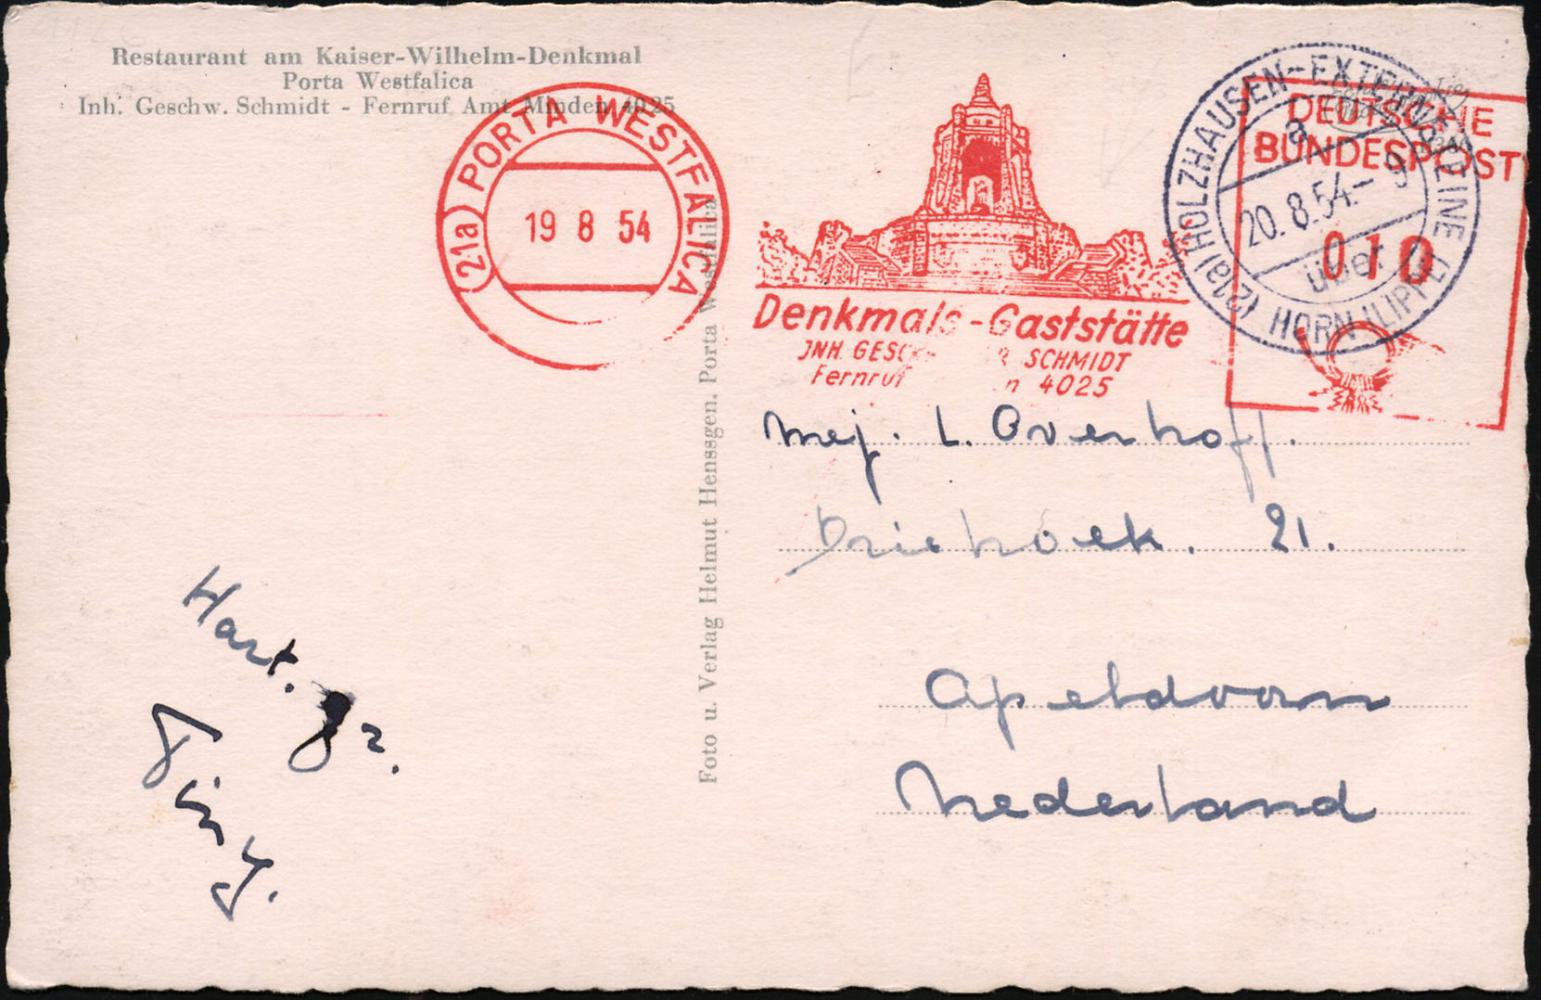 Restaurant am Kaiser-Wilhelm-Denkmal
Porta Westfalica
Inh. Geschw. Schmidt - Fernruf Amt Minden 4025
(21a) PORTA WESTFALICA
19 8 54
Denkmals-Gaststätte
JNH. GESC R SCHMIDT
Fernruf n 4025
(21a) HOLZHAUSEN-EXTERNSTEINE
a
20. 8. 54. - 9
über
HORN (LIPPE)
DEUTSCHE
BUNDESPOST
010
Foto u. Verlag Helmut Henssgen, Porta Westfalica
Mej. L. Overhoff.
Driehoek. 21.
Apeldoorn
Nederland
Hart. gr.
Tiny.